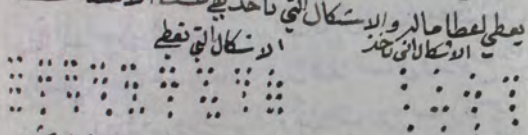 يعطي لعطا مالد والاشكال التي تاخذ
الاشكال التي تاخذ
الاشكال التي تعطي